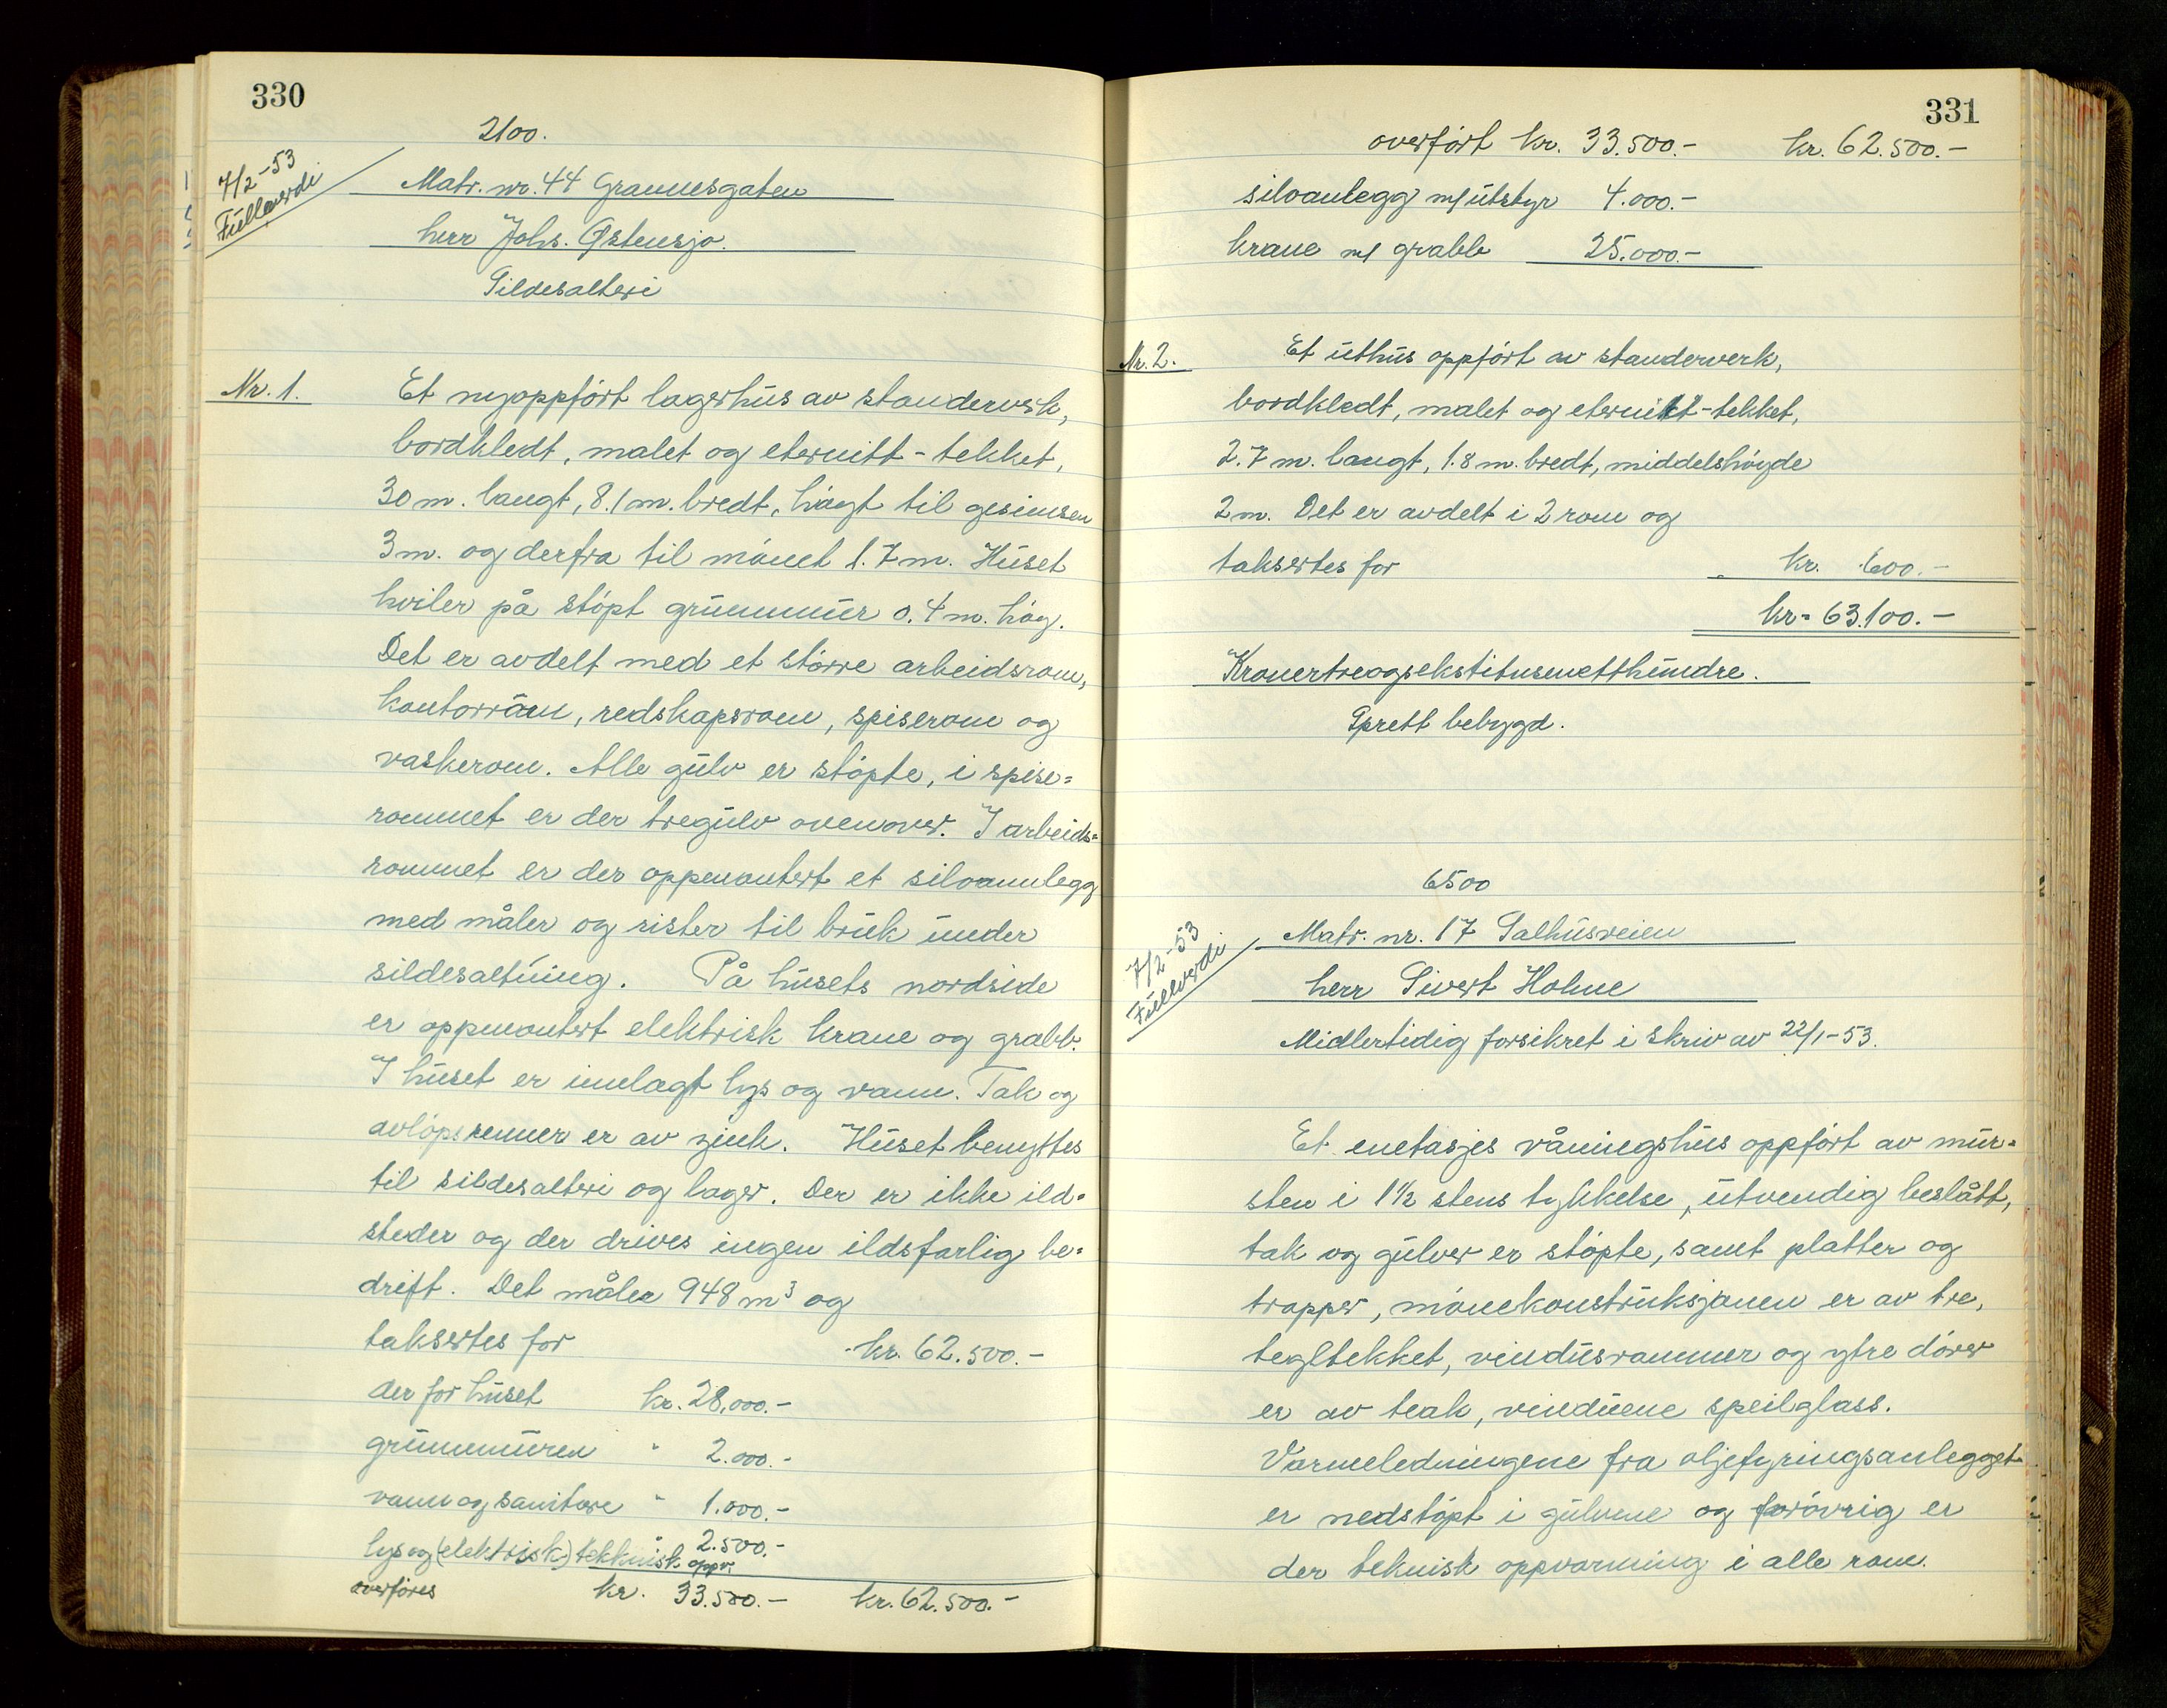 330
2100.
7/2-53
Fullverdi
Matr. nr. 44 Grannesgaten
herr Johs. Østensjø.
Sildesalteri
Nr. 1. Et nyoppført lagerhus av standerverk,
bordkledt, malet og eternitt-tekket,
30 m. langt, 8.1 m. bredt, høgt til gesimsen
3 m. og derfra til mønet 1.7 m. Huset
hviler på støpt grunnmur 0.4 m. høg.
Det er avdelt med et større arbeidsrom,
kontorrom, redskapsrom, spiserom og
vaskerom. Alle gulv er støpte, i spise=
rommet er der tregulv ovenover. I arbeids=
rommet er der oppmontert et siloannlegg
med måler og rister til bruk under
sildesaltning. På husets nordside
er oppmontert elektrisk krane og grabb.
I huset er innlagt lys og vann. Tak og
avløpsrenner er av zink. Huset benyttes
til sildesalteri og lager. Der er ikke ild=
steder og der drives ingen ildsfarlig be=
drift. Det måler 948 m³ og
taksertes for kr. 62.500.-
der for huset kr. 28.000.-
grunnmuren " 2.000.-
vann og sanitære " 1.000.-
lys og (elektrisk) teknisk oppv. " 2.500.-
overføres kr. 33.500.- kr. 62.500.-
331
overført kr. 33.500.- kr. 62.500.-
siloanlegg m/ utstyr 4.000.-
krane m/ grabb 25.000.-
Nr. 2. Et uthus oppført av standerverk,
bordkledt, malet og eternitt-tekket,
2.7 m. langt, 1.8 m. bredt, middelshøyde
2 m. Det er avdelt i 2 rom og
taksertes for kr. 600.-
kr. 63.100.-
Kronertreogsekstitusenetthundre.
Sprett bebygd.
6500
7/2-53
Fullverdi
Matr. nr. 17 Salhusveien
herr Sivert Holme
Midlertidig forsikret i skriv av 22/1-53.
Et enetasjes våningshus oppført av mur=
sten i 1½ stens tykkelse, utvendig beslått,
tak og gulver er støpte, samt platter og
trapper, mønekonstruksjonen er av tre,
tegltekket, vindusrammer og ytre dører
er av teak, vinduene speilglass.
Varmeledningene fra oljefyringsanlegget
er nedstøpt i gulvene og forøvrig er
der teknisk oppvarming i alle rom.